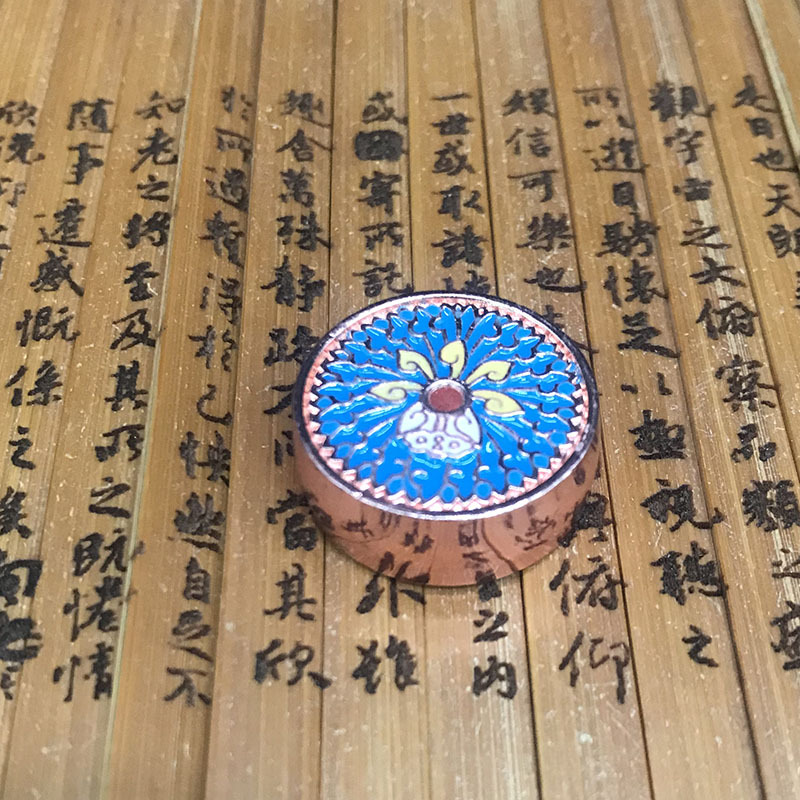 是日也天朗
觀宇宙之大俯察品類之盛
所以遊目騁懷足以極視聽之
娛信可樂也夫與俯仰
一世或取諸之內
或因寄所託外雖
趣舍萬殊靜躁不同當其欣
於所遇暫得於己怏然自足不
知老之將至及其所之既惓情
隨事遷感慨係之矣向之
欣俛仰之